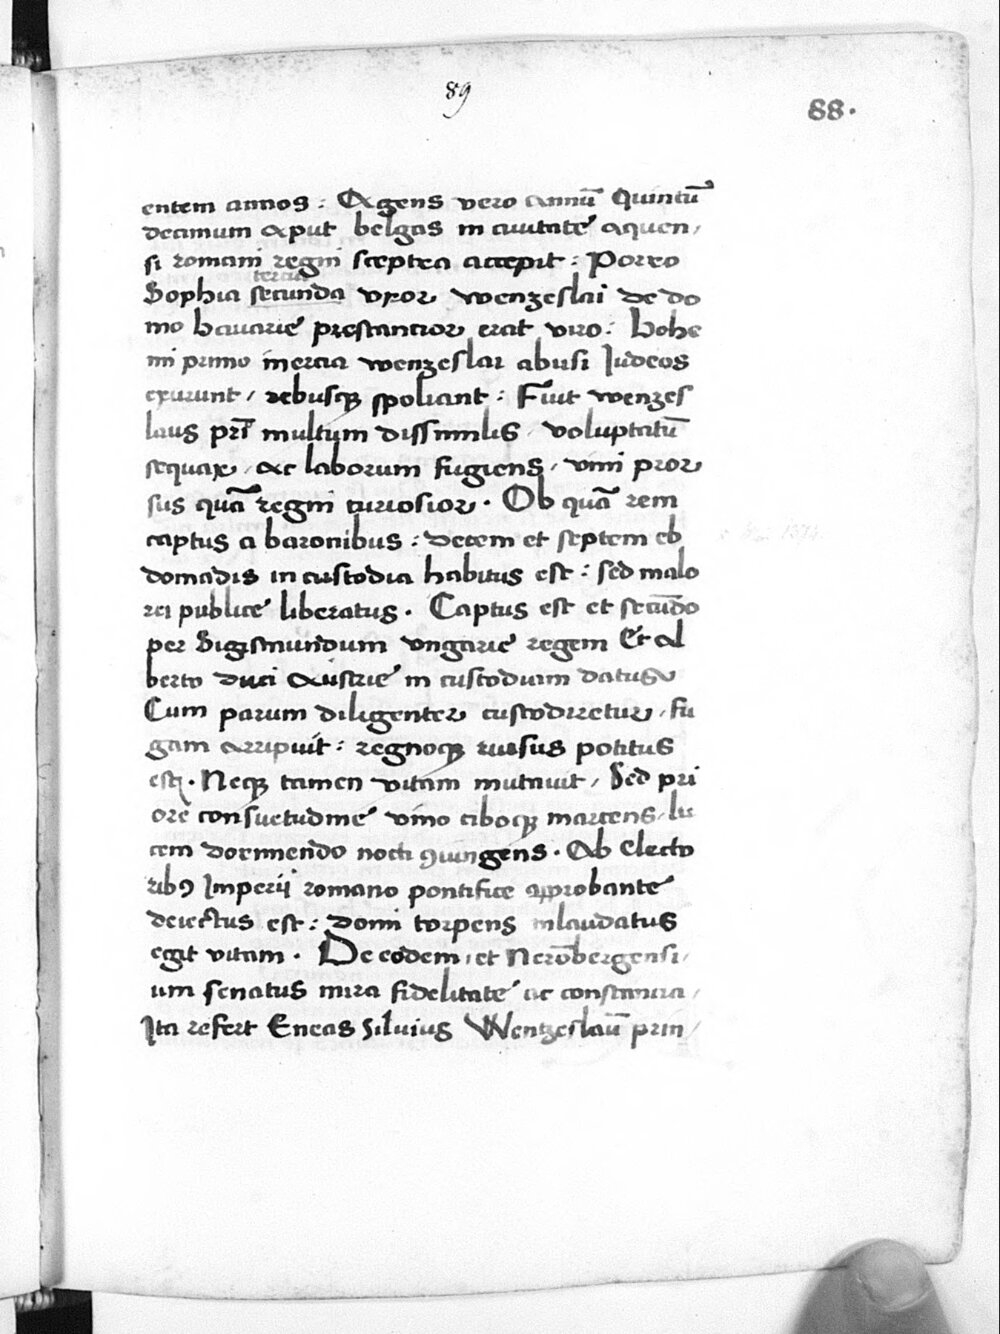 89
88.
entem annos : Agens vero annū Quintū
decimum aput belgas in ciuitate aquen,
si romani regni sceptra accepit : Porro
tercia
Sophia secunda vxor wenzeslai de do
mo bauarie prestantior erat viro : bohe
mi primo inercia wenzeslai abusi Iudeos
exurunt, rebusqꝫ spoliant : Fuit wenzes
laus pr̄i multum dissimilis, voluptatū
sequax, ac laborum fugiens, vini pror
sus quā regni curiosior. Ob quā rem
captus a baronibus : decem et septem eb
domadis in custodia habitus est : sed malo
rei publice liberatus. Captus est et secūdo
per Sigismundum vngarie regem Et al
berto duci Austrie in custodiam datus
Cum parum diligenter custodiretur, fu
gam arripuit : regnoqꝫ rursus potitus
est. Neqꝫ tamen vitam mutauit, Sed pri
ore consuetudine vino ciboqꝫ marcens, lu
cem dormiendo nocti ꝯiungens. Ab electo
ribꝰ Imperij romano pontifice approbante
deiectus est : domi torpens inlaudatus
egit vitam. De eodem, et Nerōbergensi,
um senatus mira fidelitate ac constancia,
Ita refert Eneas Siluius Wentzeslaū prin,